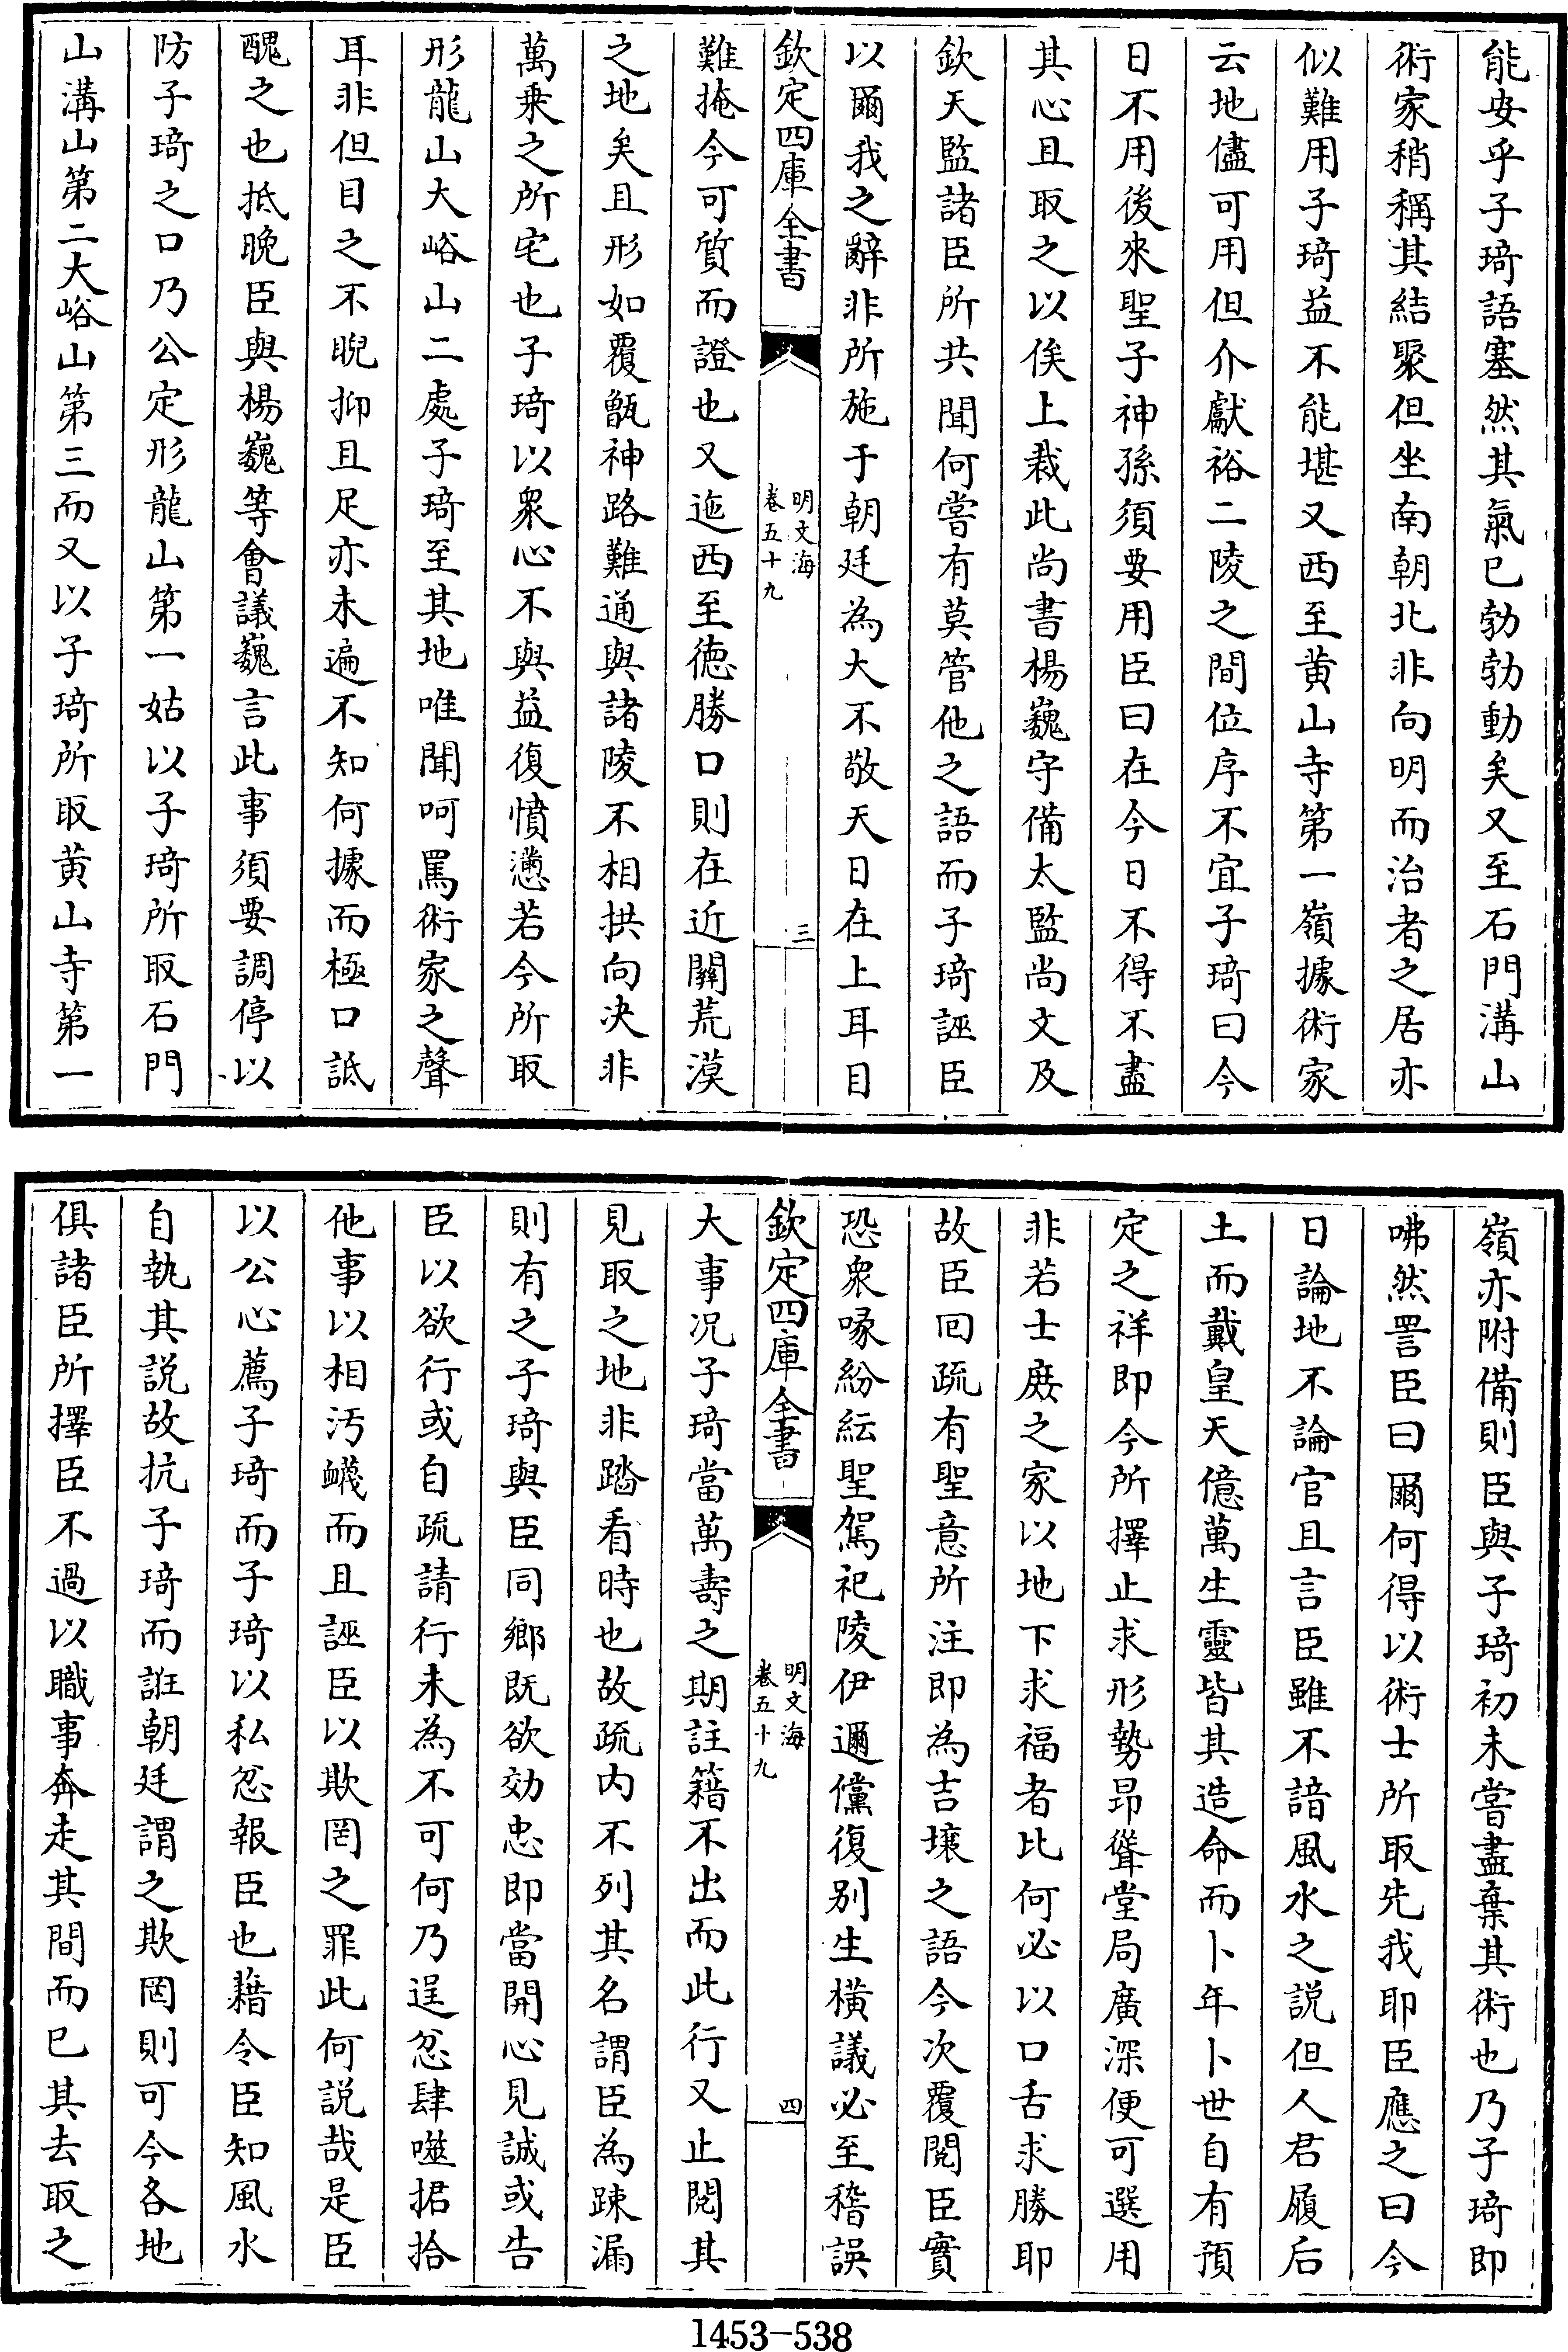 能安乎子琦語塞然其氣已勃勃動矣又至石門溝山
術家稍稱其結聚但坐南朝北非向明而治者之居亦
似難用子琦益不能堪又西至黄山寺第一嶺據術家
云地儘可用但介獻裕二陵之間位序不宜子琦曰今
日不用後來聖子神孫須要用臣曰在今日不得不盡
其心且取之以俟上裁此尚書楊巍守備太監尚文及
欽天監諸臣所共聞何嘗有莫管他之語而子琦誣臣
以爾我之辭非所施于朝廷為大不敬天日在上耳目
欽定四庫全書
明文海
卷五十九
三
難掩今可質而證也又迤西至德勝口則在近關荒漠
之地矣且形如覆甑神路難通與諸陵不相拱向决非
萬乘之所宅也子琦以衆心不與益復憤懣若今所取
形龍山大峪山二處子琦至其地唯聞呵罵術家之聲
耳非但目之不睨抑且足亦未遍不知何據而極口詆
醜之也抵晚臣與楊巍等會議巍言此事須要調停以
防子琦之口乃公定形龍山第一姑以子琦所取石門
山溝山第二大峪山第三而又以子琦所取黄山寺第一
嶺亦附備則臣與子琦初未嘗盡棄其術也乃子琦即
咈然詈臣曰爾何得以術士所取先我耶臣應之曰今
日論地不論官且言臣雖不諳風水之説但人君履后
土而戴皇天億萬生靈皆其造命而卜年卜世自有預
定之祥即今所擇止求形勢昂聳堂局廣深便可選用
非若士庶之家以地下求福者比何必以口舌求勝耶
故臣回疏有聖意所注即為吉壤之語今次覆閱臣實
恐衆喙紛紜聖駕祀陵伊邇儻復别生横議必至稽誤
欽定四庫全書
明文海
卷五十九
四
大事况子琦當萬壽之期註籍不出而此行又止閱其
見取之地非踏看時也故疏内不列其名謂臣為疎漏
則有之子琦與臣同鄉既欲効忠即當開心見誠或告
臣以欲行或自疏請行未為不可何乃逞忿肆噬捃拾
他事以相汚衊而且誣臣以欺罔之罪此何説哉是臣
以公心薦子琦而子琦以私忿報臣也藉令臣知風水
自執其説故抗子琦而誑朝廷謂之欺罔則可今各地
俱諸臣所擇臣不過以職事奔走其間而已其去取之
1453-538